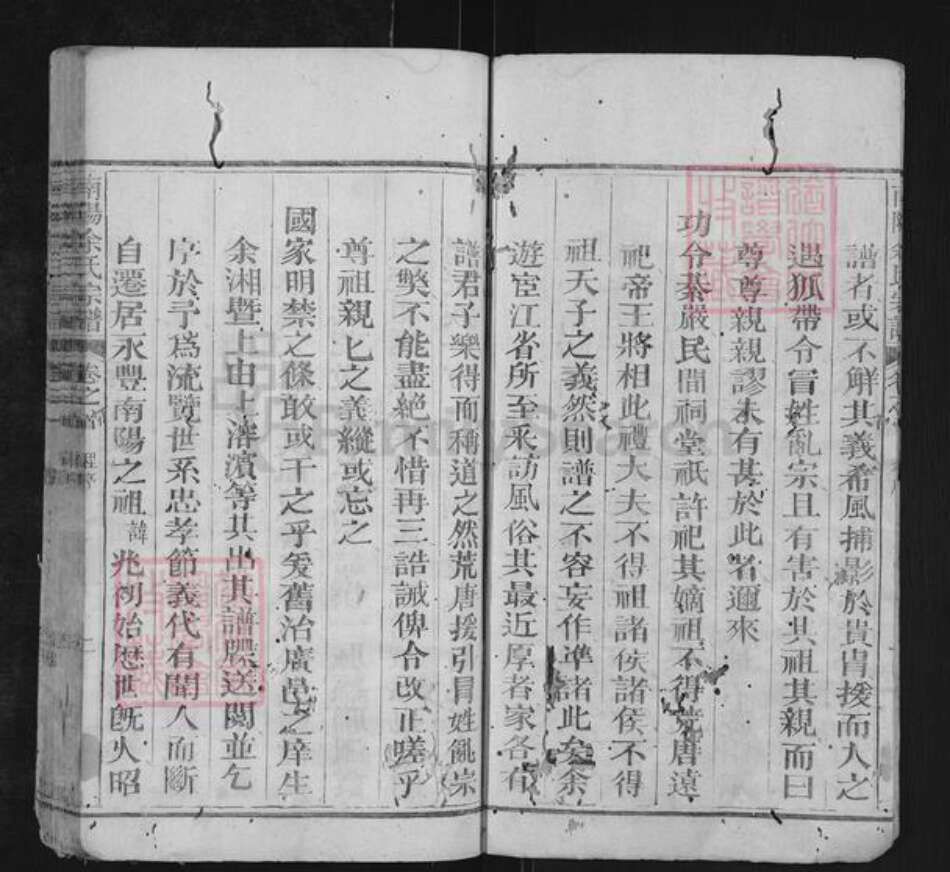 譜者或不鮮其義希風捕影於貴胄援而入之
遇狐帶令冐姓亂宗且有害於其祖其親而曰
尊尊親親謬未有甚於此者邇來
功令綦嚴民間祠堂祇許祀其嫡祖不得荒唐遠
祀帝王將相此禮大夫不得祖諸侯諸侯不得
祖天子之義然則譜之不容妄作準諸此矣余
遊宦江省所至采訪風俗其最近厚者家各有
譜君子樂得而稱道之然荒唐援引冒姓亂宗
之獘不能盡絶不惜再三誥誡俾令改正嗟乎
尊祖親匕之義縱或忘之
國家明禁之條敢或干之乎爰舊治廣邑之庠生
余湘暨上由上濬濱等其出其譜牒送閱並乞
序於予爲流覽世系忠孝節義代有聞人而斷
自遷居永豐南陽之祖諱兆初始歷世旣久昭
南陽余氏宗譜
卷之首